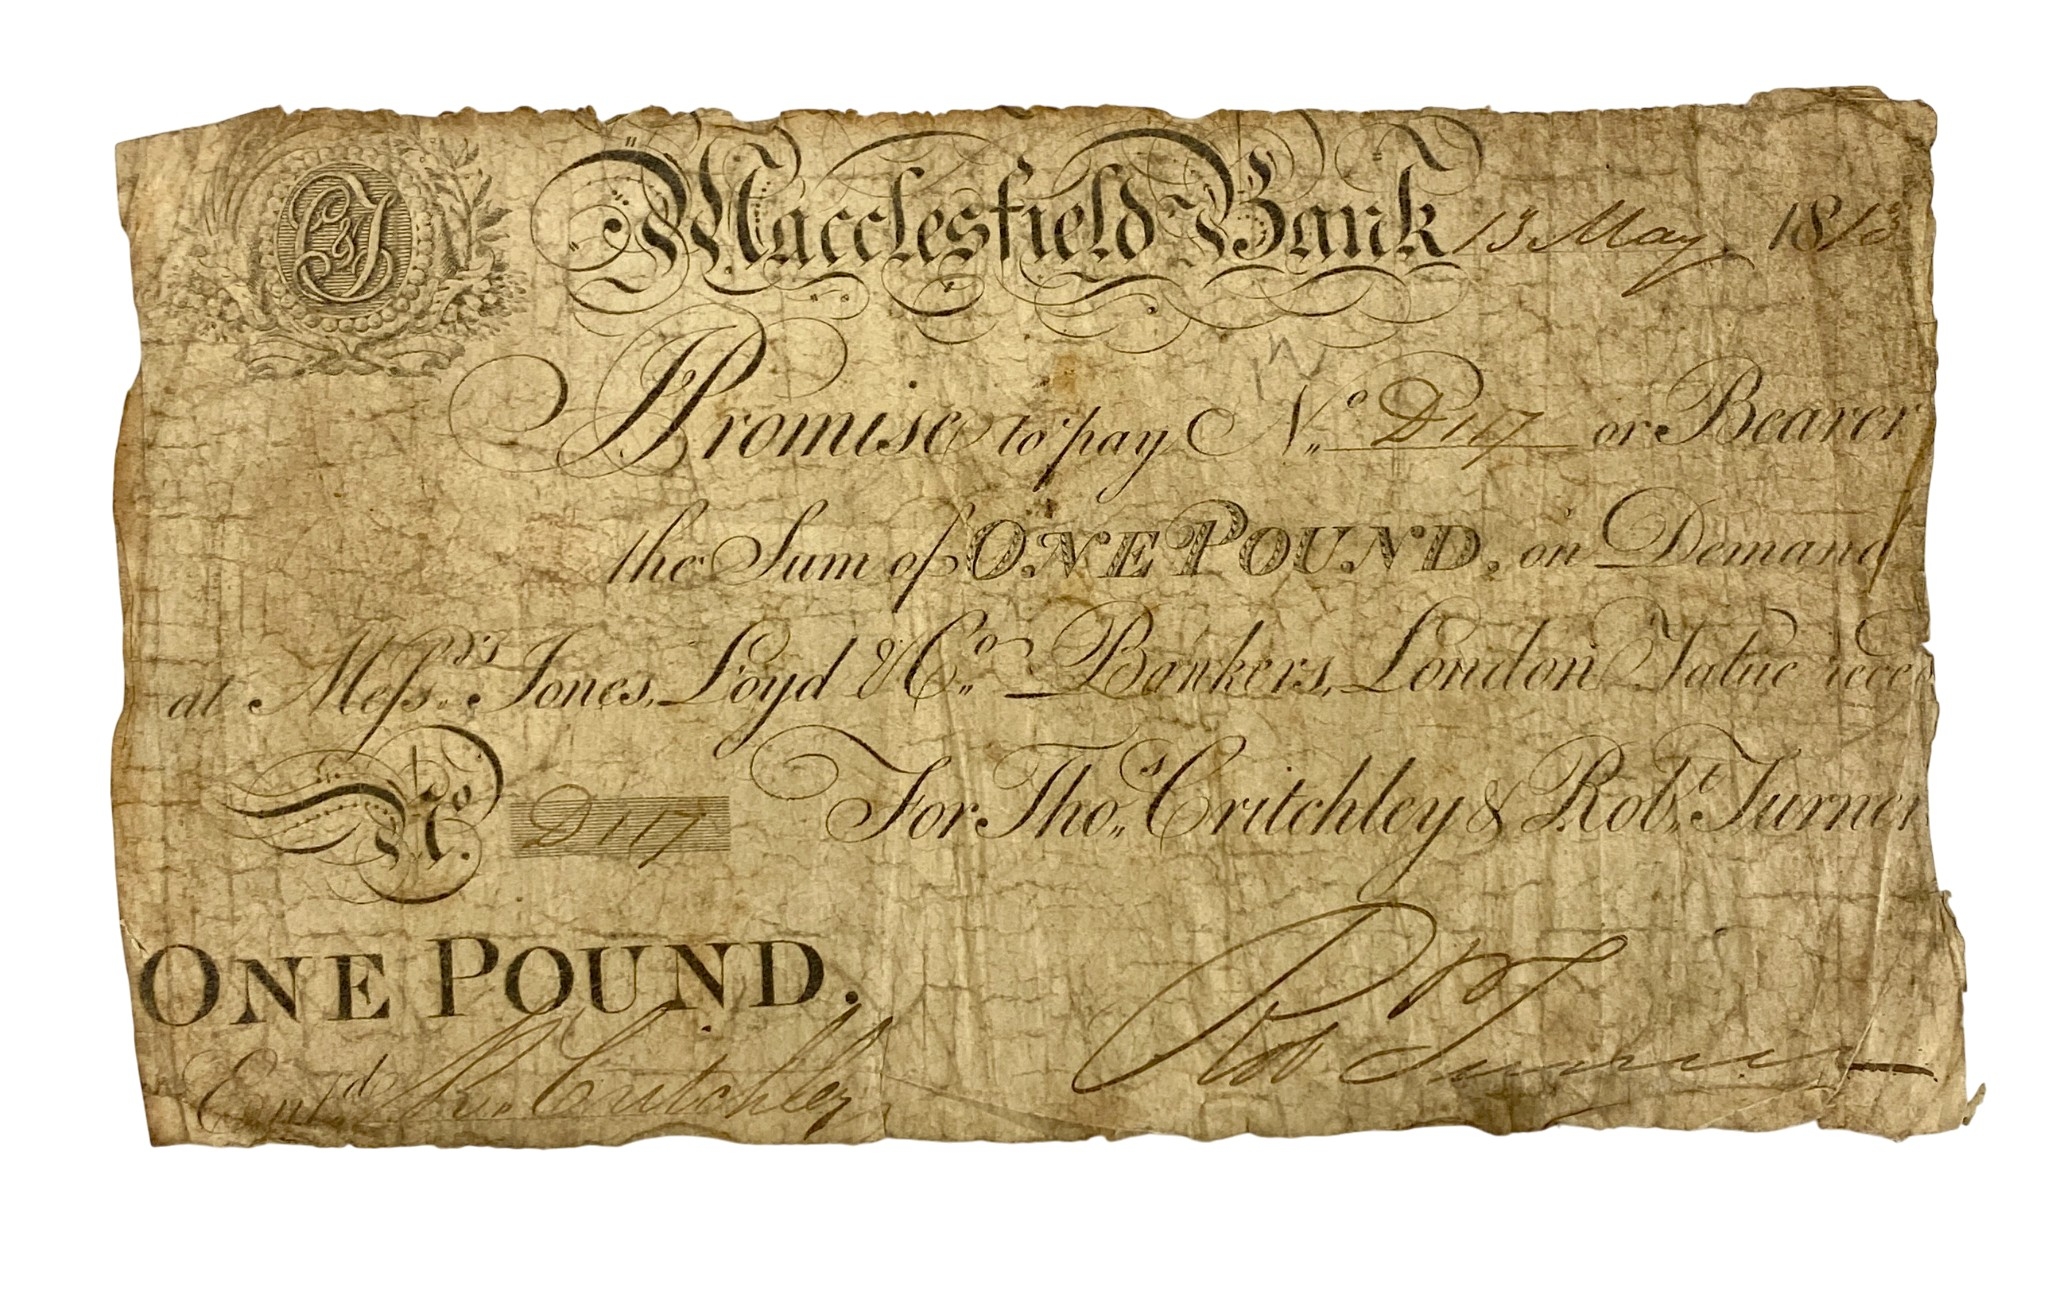 C&T
Macclesfield Bank 13 May 1813
I Promise to pay No. D117 or Bearer
the Sum of ONE POUND, on Demand
at Messrs. Jones, Loyd & Co. Bankers, London Value rece
No. D117 For Thos. Critchley & Robt. Turner
ONE POUND.
Entd. Critchley
Rob Turner